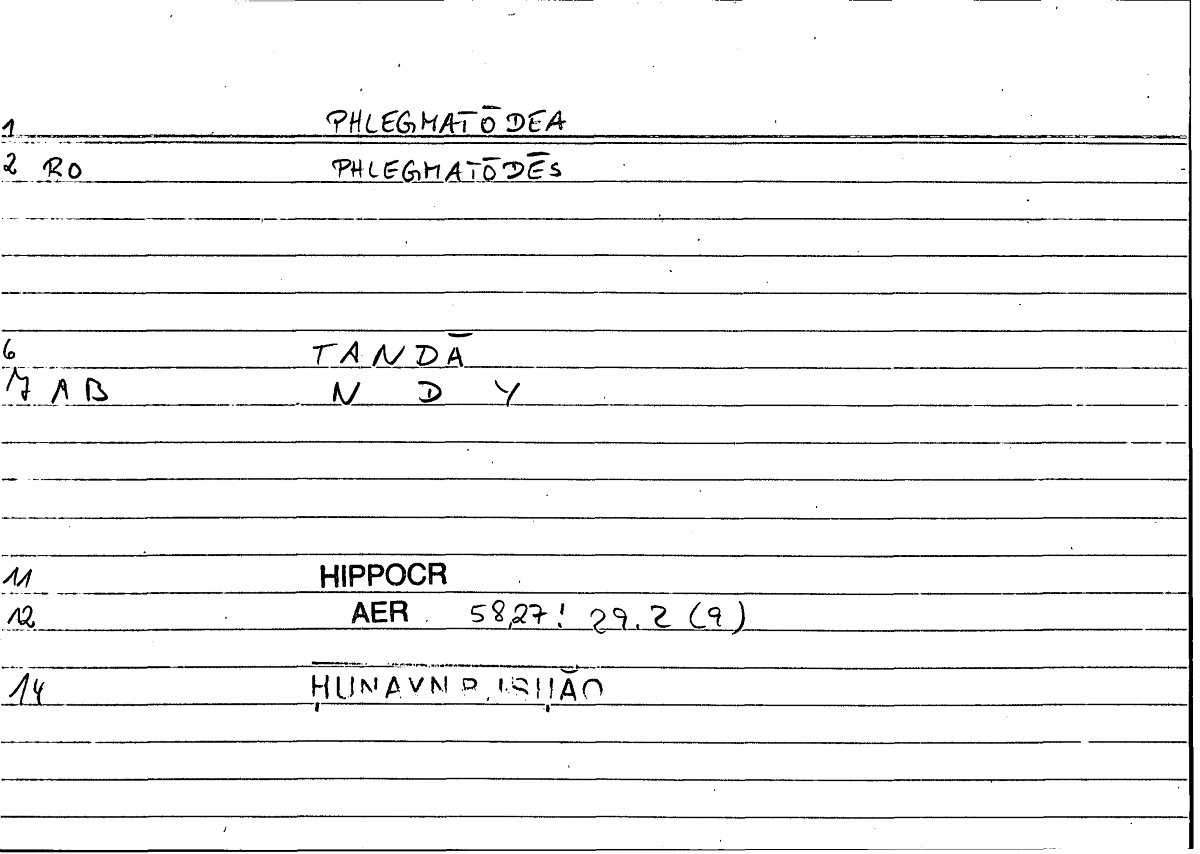 1 PHLEGMATŌDEA
2 RO PHLEGMATŌDĒS
6 TANDĀ
7 AB N D Y
11 HIPPOCR
12 AER 58,27! 29.2 (9)
14